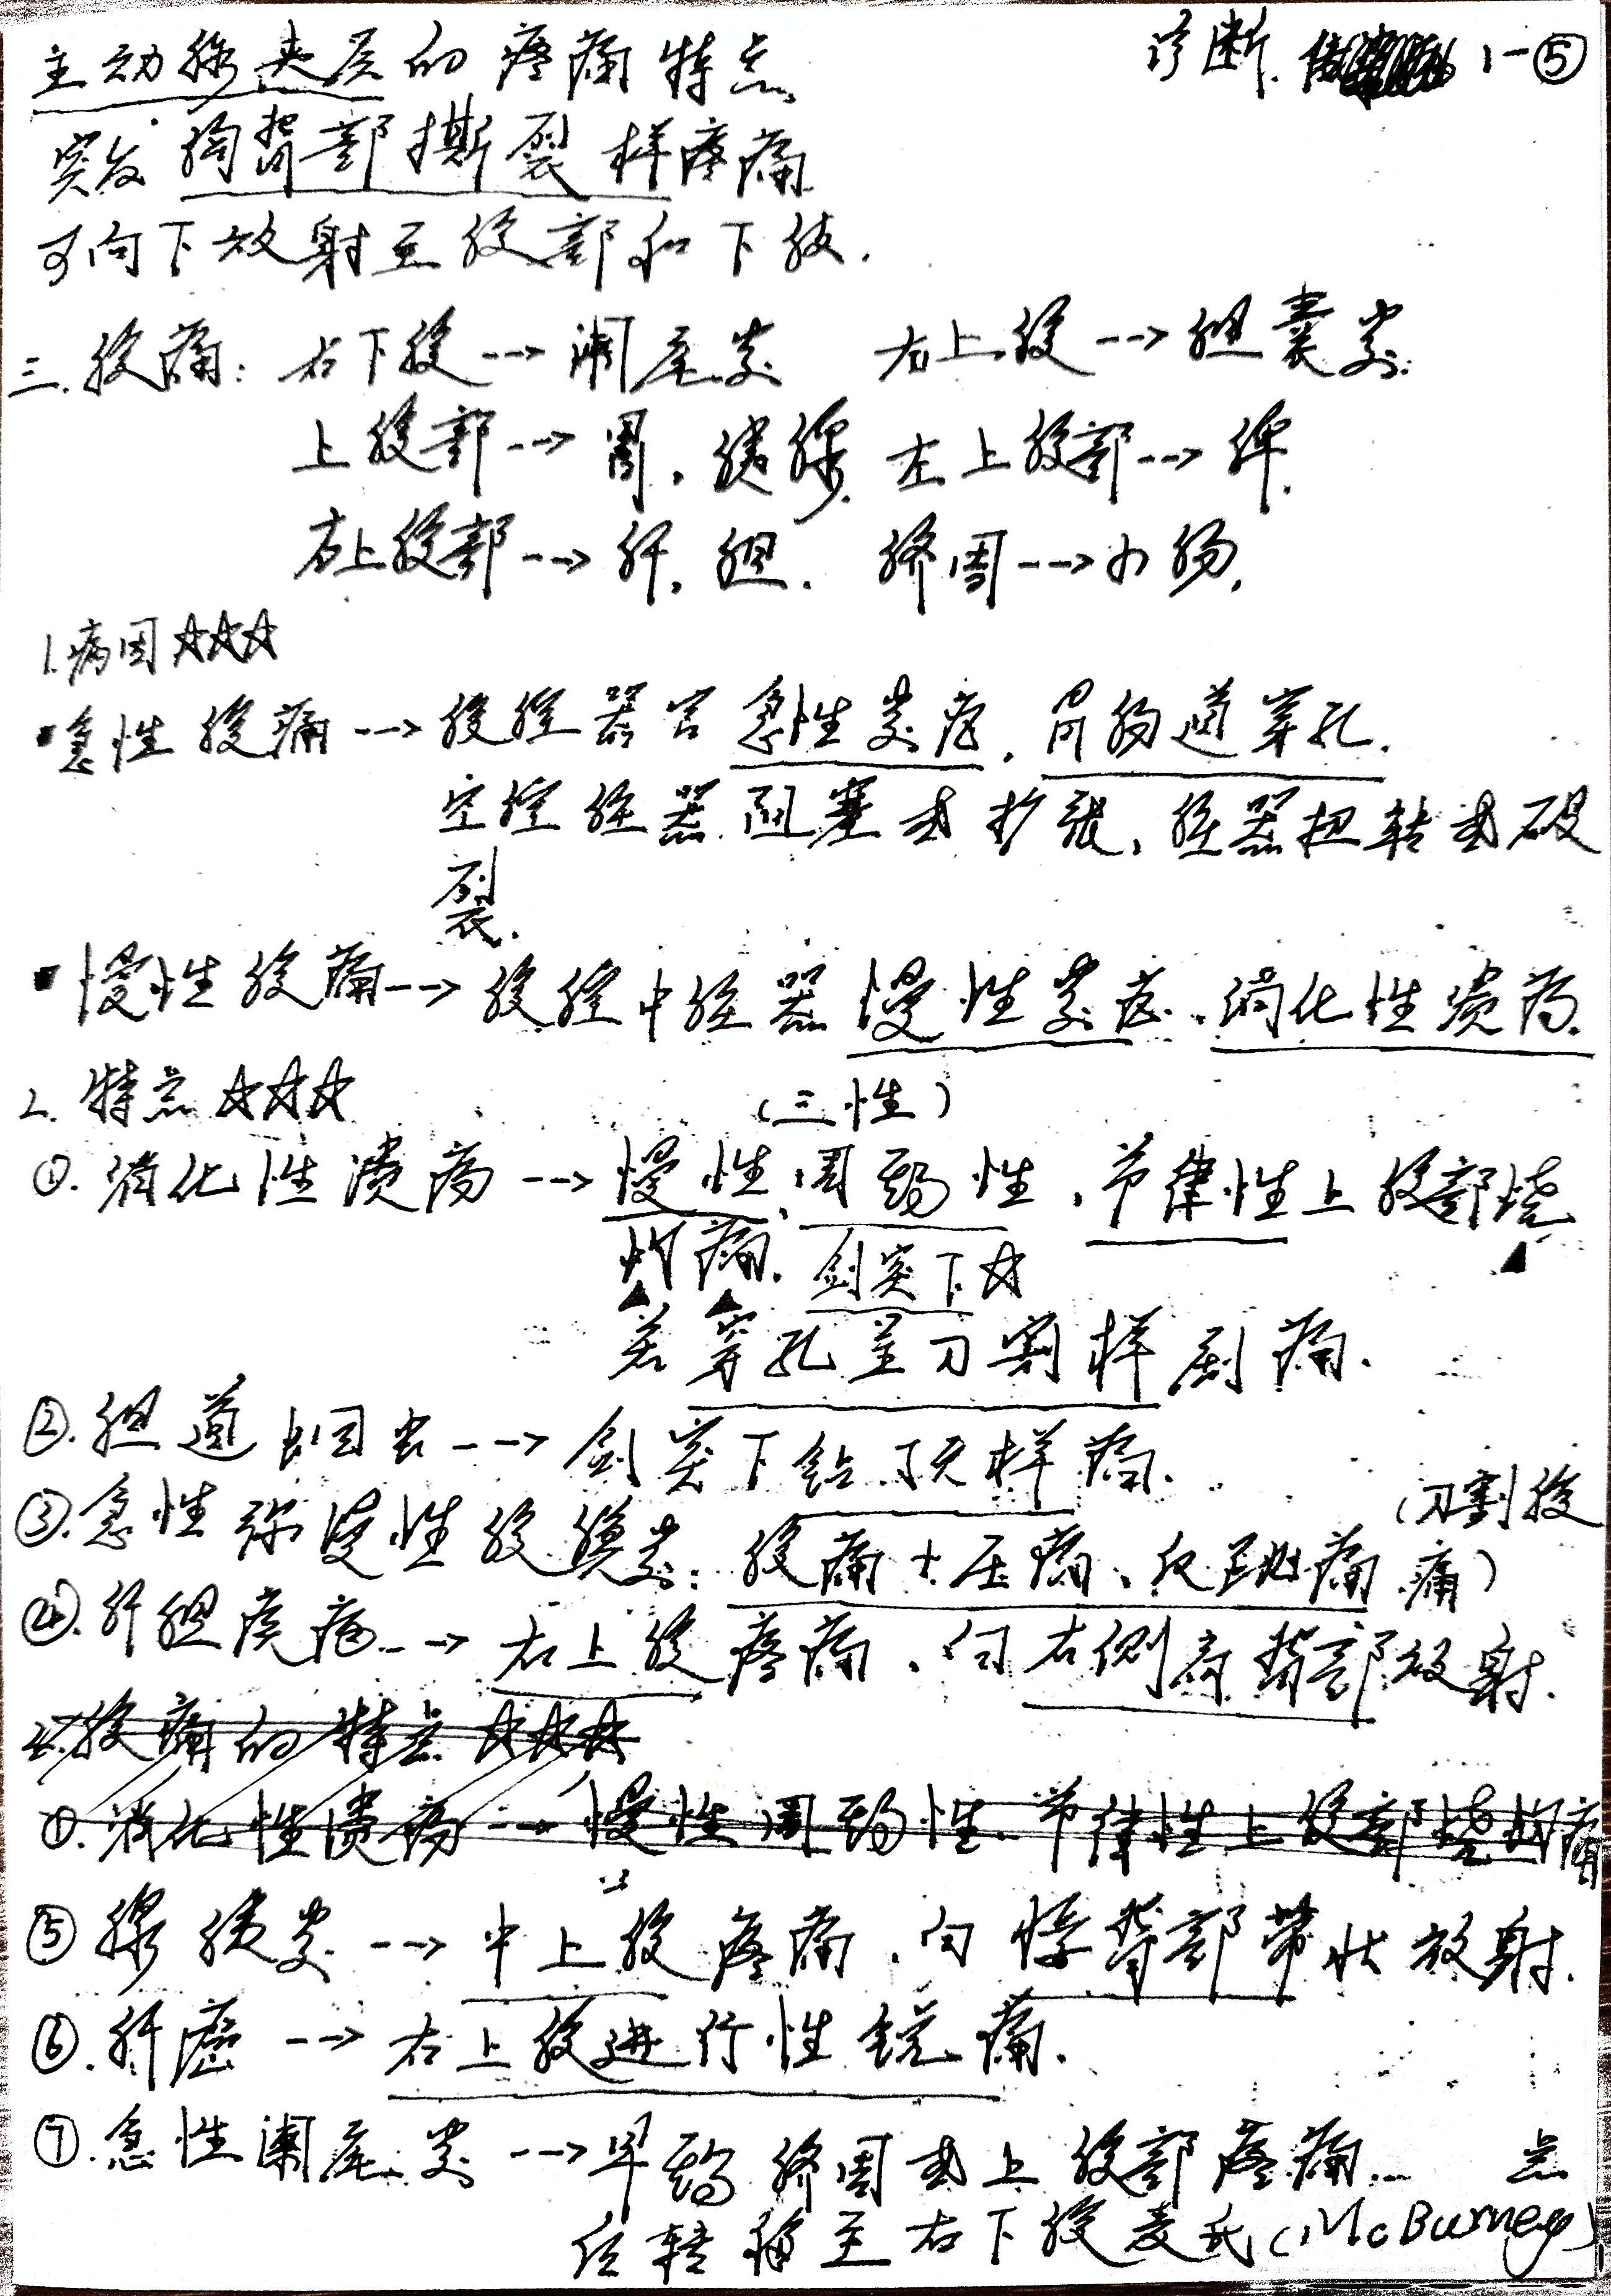 主动脉夹层的疼痛特点
诊断 1-⑤
突发 胸背部撕裂样疼痛
可向下放射至腹部和下肢.
三.腹痛: 右下腹-->阑尾炎 右上腹-->胆囊炎:
上腹部-->胃、胰腺. 左上腹部-->脾.
右上腹部-->肝、胆. 脐周-->小肠.
1.病因☆☆☆
急性腹痛-->腹腔器官急性炎症、胃肠道穿孔.
空腔脏器阻塞或扩张、脏器扭转或破
裂.
慢性腹痛-->腹腔中脏器慢性炎症、消化性溃疡.
2.特点☆☆☆ (三性)
①.消化性溃疡-->慢性、周期性、节律性上腹部烧
灼痛. 剑突下☆
若穿孔呈刀割样剧痛.
②.胆道蛔虫-->剑突下钻顶样痛.
③.急性弥漫性腹膜炎: 腹痛+压痛、反跳痛 (刀割腹
痛)
④.肝胆疾病-->右上腹疼痛、向右侧肩背部放射.
2.腹痛的特点☆☆☆
①.消化性溃疡-->慢性周期性、节律性上腹部烧灼痛
⑤腺胰炎-->中上腹疼痛、向腰背部带状放射.
⑥.肝癌-->右上腹进行性锐痛.
⑦.急性阑尾炎-->早期脐周或上腹部疼痛.
后转移至右下腹麦氏(McBurney)点